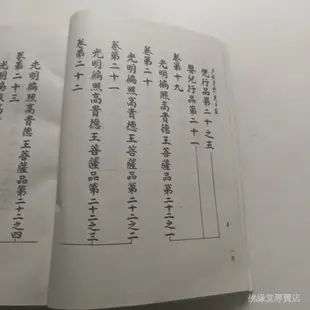 梵行品第二十之五
嬰兒行品第二十一
卷第十九
光明徧照高貴德王菩薩品第二十二之一
卷第二十
光明徧照高貴德王菩薩品第二十二之二
卷第二十一
光明徧照高貴德王菩薩品第二十二之三
卷第二十二
光明徧照高貴德王菩薩品第二十二之四
卷第二十三
光明徧
佛緣堂專賣店